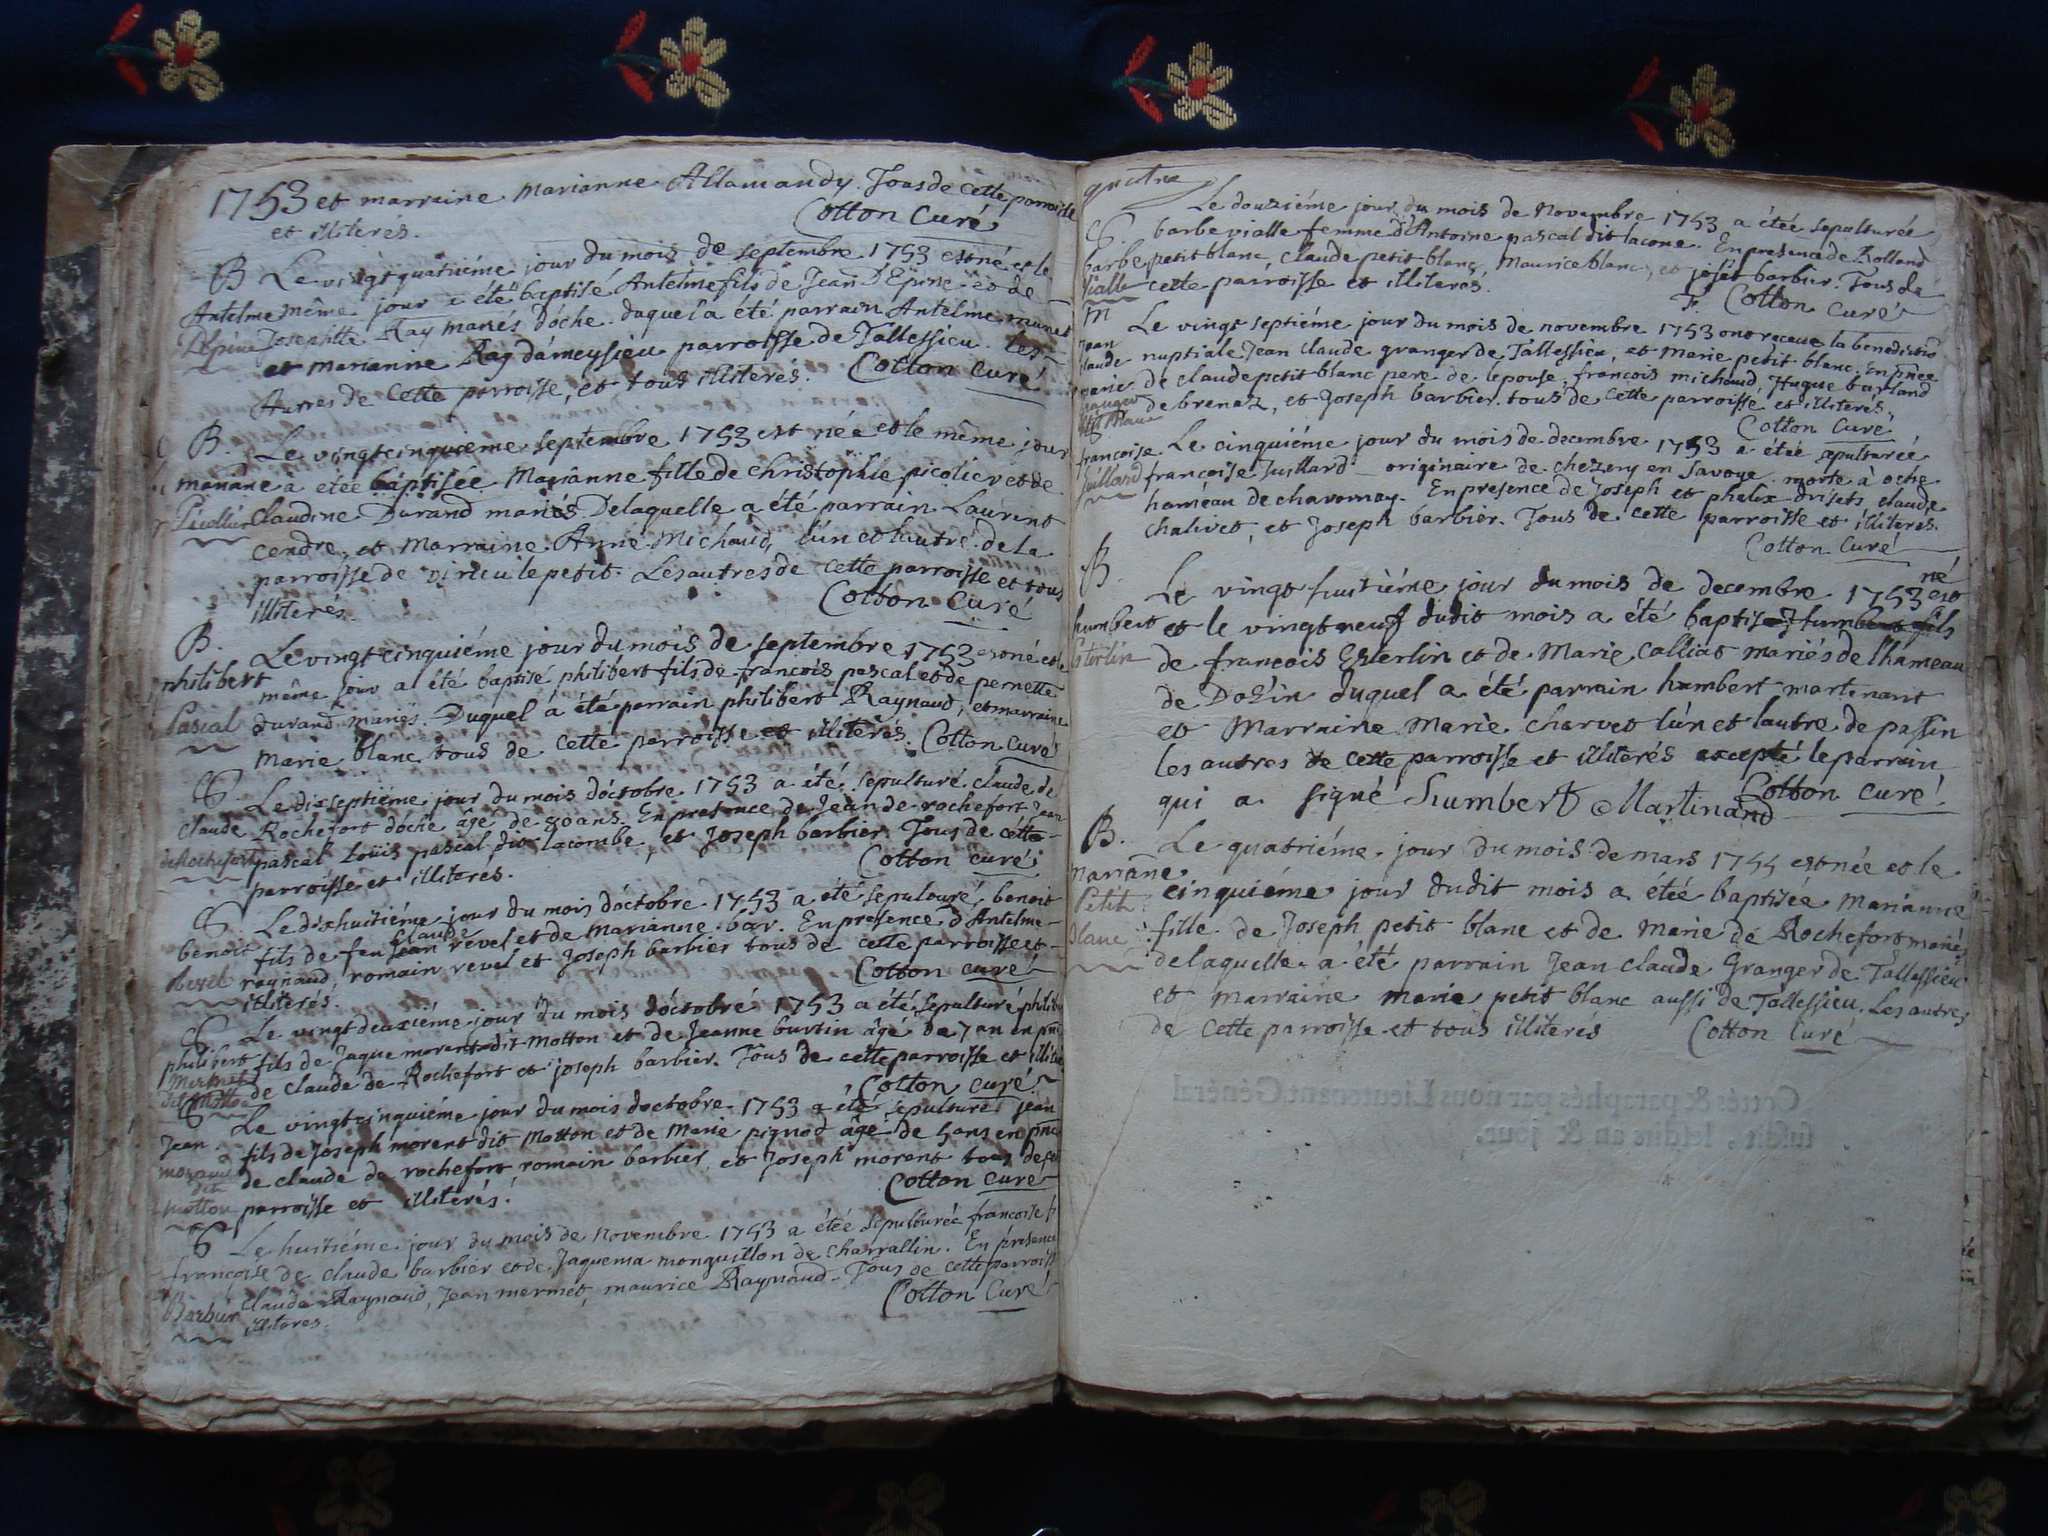 1753 et marraine Marianne Allamandy. Tous de cette parroisse
et illiterés. Cotton Curé
B Le vingt quatriéme jour du mois de septembre 1753 est né et le
Antelme même jour a été baptisé Antelme fils de Jean D'Epine et de
Depine Josephte Ray mariés d'oche. duquel a été parrain Antelme
et marianne Ray dameysieu parroisse de Tallessieu. les
Autres de cette parroisse, et tous illiterés. Cotton Curé
B. Le vingt cinquieme septembre 1753 est née et le même jour
mariane a étée baptisée Marianne fille de Christophle picolier et de
Picollier Claudine Durand mariés Delaquelle a été parrain Laurent
cendre, et Marraine Anne Michaud, l'un et lautre de la
parroisse de virieu le petit. Les autres de cette parroisse et tous
illiterés. Cotton Curé
B. Le vingt cinquiéme jour du mois de septembre 1753 est né et le
philibert même jour a été baptisé philibert fils de francois pascal et de pernette
Pascal durand mariés. Duquel à été parrain philibert Raynaud, et marraine
Marie blanc tous de cette parroisse et illiterés. Cotton Curé
S. Le dixseptiéme jour du mois d'octobre 1753 a été sepulturé claude de
Claude Rochefort d'oche âge de 80 ans. En presence de Jean de rochefort Jean
de Rochefort pascal Loüis pascal dit lacombe, et Joseph barbier. Tous de cette
parroisse et illiterés. Cotton curé
S. Le dixhuitiéme jour du mois d'octobre 1753 a été sepulturé, benoit
Claude
benoit fils de feu Jean revel et de Marianne bar. En presence d'Antelme
Revel raynaud, romain revel et Joseph barbier tous de cette parroisse et
illiterés. Cotton curé
S. Le vingt deuxiéme jour du mois d'octobré 1753 a été sepulturé philibert
philibert fils de Jaque morent dit Motton et de Jeanne burtin âge de 7 an en pnce
de Claude de Rochefort et joseph barbier. Tous de cette parroisse et illiterés
Cotton curé
S Le vingt cinquiéme jour du mois doctobre 1753 a été sepulturé jean
Jean fils de Joseph morent dit Motton et de Marie pignod âgé de 5 ans en pnce
de claude de rochefort romain barbier, et Joseph morent tous de
dit
motton parroisse et illiterés. Cotton curé
S Le huitiéme jour du mois de Novembre 1753 a étée sepulturée francoise f
francoise de claude barbier et de Jaquema monguillon de Charrallin. En présence
Barbier Claude Raynaud, Jean mermet, maurice Raynaud. Tous de cette parroisse
illiteres. Cotton Curé
quatre
Le douziéme jour du mois de Novembre 1753 a étée sepulturée
S. barbe vialle femme d'Antoine pascal dit lacone. En presence de Rolland
barbe petit blanc, Claude petit blanc, Maurice blanc, et josep barbier. Tous de
Vialle cette parroisse et illiterés. F. Cotton Curé
M Le vingt septiéme jour du mois de novembre 1753 ont receue la benedictio
Jean
Claude nuptiale Jean Claude granger de Tallessieu, et Marie petit blanc. En pnce
marie de claude petit blanc pere de lepouse, francois michaud, Hugue burland
granger de brenaz, et Joseph barbier. tous de cette parroisse et illiterés.
petit blanc Cotton Curé
S.
francoise Le cinquiéme jour du mois de decembre 1753 a étée sepulturée
Juillard francoise Juillard originaire de chezery en Savoye morte à oche
hameau de chavornay. En presence de Joseph et phelix drisets claude
chalivet, et Joseph barbier. Tous de cette parroisse et illiteres.
Cotton Curé
B. Le vingt huitiéme jour du mois de decembre 1753 est né
humbert et le vingt neuf dudit mois a été baptisé Humbert fils
Esterlin de francois Esterlin et de Marie Calliat mariés de lhameau
de Dozin duquel a été parrain humbert martenant
et Marraine Marie Charvet lun et lautre de passin
les autres de cette parroisse et illiterés excepté le parrain
qui a signé humbert Martinand Cotton Curé
B. Le quatriéme jour du mois de mars 1754 est née et le
Mariane cinquiéme jour dudit mois a étée baptisée Marianne
Petit fille de Joseph petit blanc et de Marie de Rochefort mariés
Blanc delaquelle a été parrain Jean claude Granger de Tallessieu
et marraine marie petit blanc aussi de Tallessieu. Les autres
de cette parroisse et tous illiterés Cotton Curé